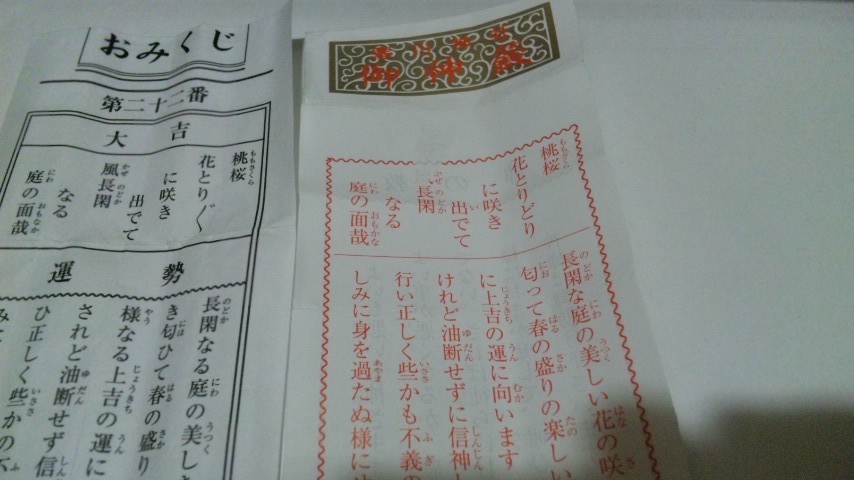 おみくじ
第二十二番
大吉
桃桜
花とり〴〵
に咲き
出でて
風長閑
なる
庭の面哉
運勢
長閑なる庭の美し
き匂ひて春の盛り
様なる上吉の運に
されど油断せず信
ひ正しく些かの不
御神籤
桃桜
花とりどり
に咲き
出でて
長閑
なる
庭の面哉
長閑な庭の美しい花の咲
匂って春の盛りの楽しい
に上吉の運に向います
けれど油断せずに信神し
行い正しく些かも不義の
しみに身を過たぬ様に